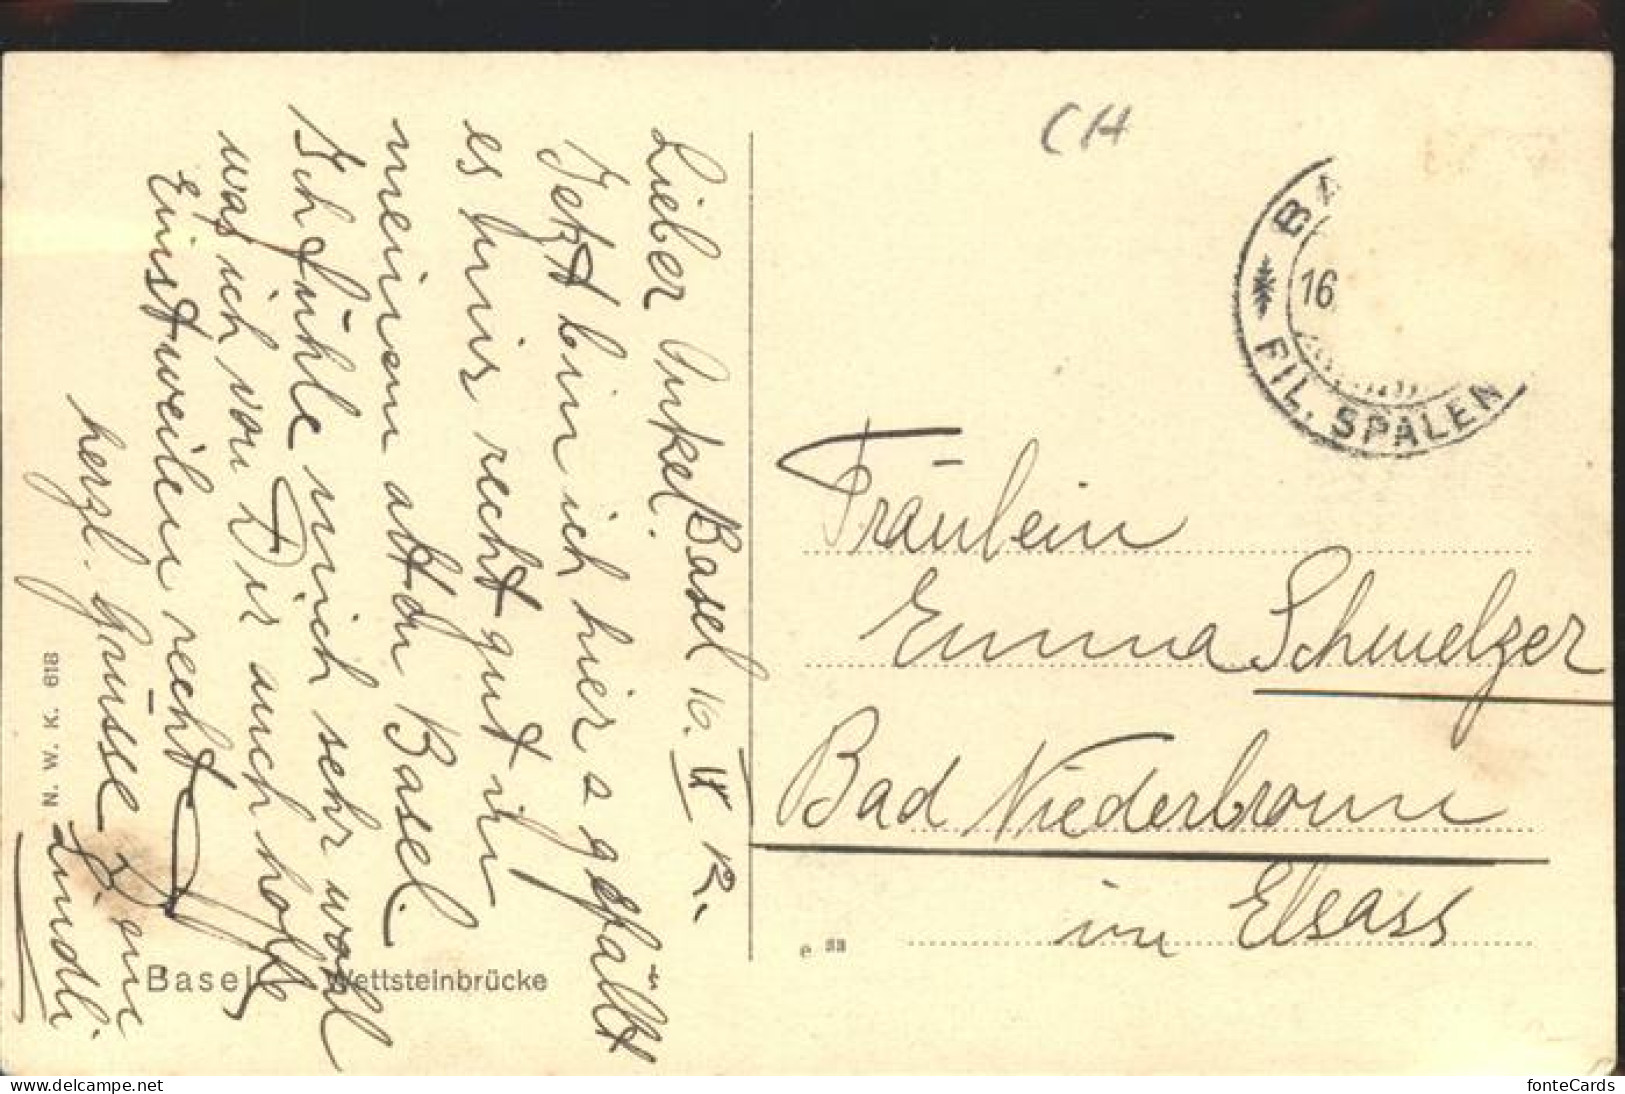 CH
BA
16
FIL. SPALEN
Basel 16. IX 12.
Lieber Onkel.
Jetzt bin ich hier & gefällt
es mir recht gut in
meinem alten Basel.
Ich fühle mich sehr wohl
was ich von Dir auch hoffe
Einstweilen recht
herzl. Grüsse
Fräulein
Emma Schmelzer
Bad Niederbronn
im Elsass
N. W. K. 618
Basel Wettsteinbrücke
fonteCards
www.delcampe.net